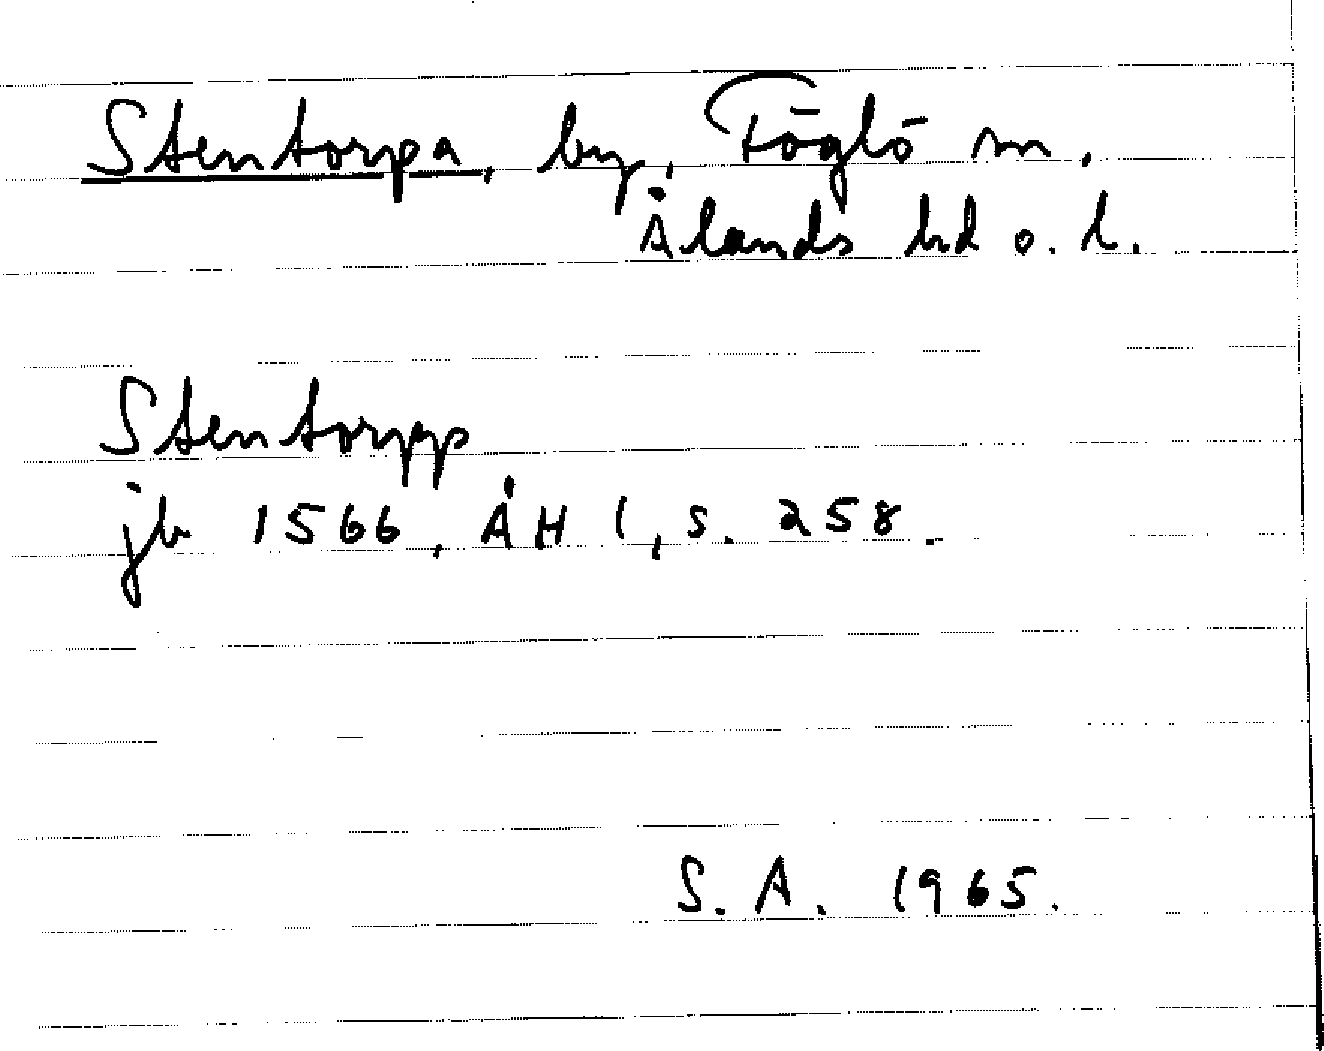 Stentorpa, by, Föglö sn,
Ålands hd o. l.
Stentorpp
jb 1566, ÅH 1, s. 258.
S. A. 1965.